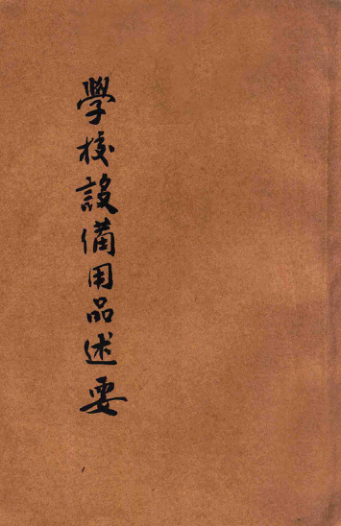 學校設備用品述要